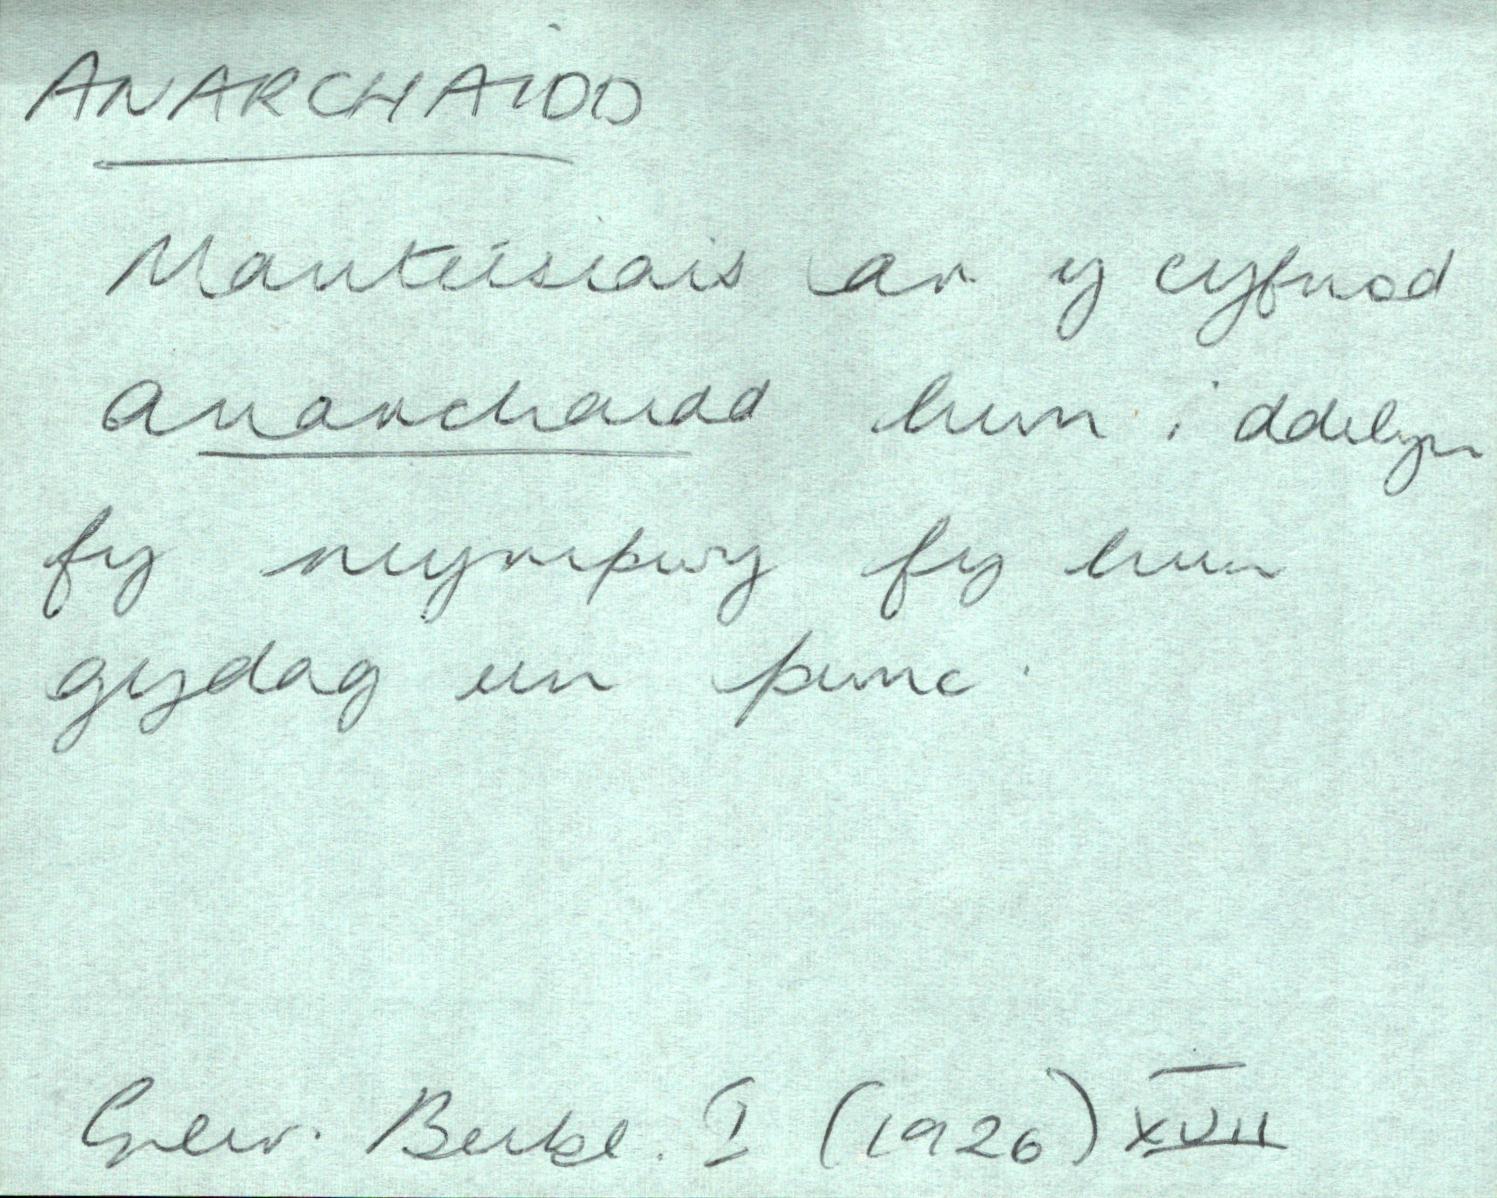 ANARCHAIDD
Manteisiais ar y cyfnod
anarchaidd hwn i ddilyn
fy nympwy fy hun
gydag un pwnc.
Geir. Beibl. I (1926) XVII